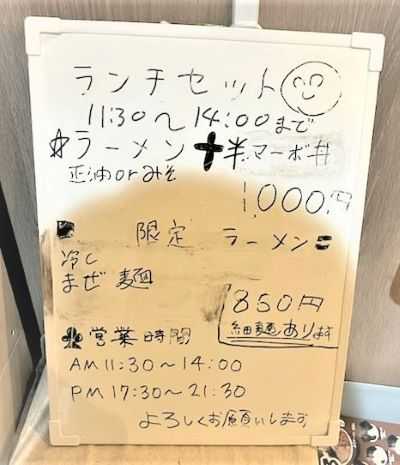 ランチセット
11:30〜14:00まで
☆ラーメン+半マーボ丼
正油orみそ
1,000円
限定 ラーメン
冷し
まぜ麺
850円
細麺あります
営業時間
AM11:30〜14:00
PM17:30〜21:30
よろしくお願いします